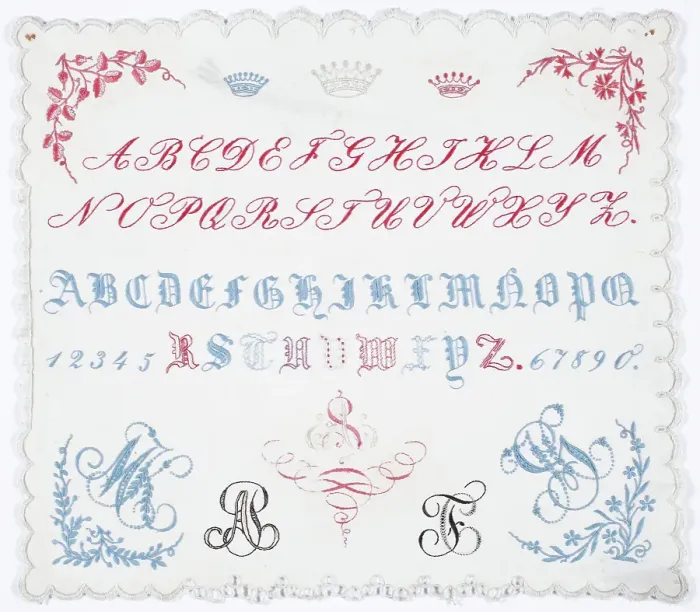 A B C D E F G H I K L M
N O P Q R S T U V W X Y Z.
A B C D E F G H I K L M N O P Q
1 2 3 4 5 R S T U V W X Y Z. 6 7 8 9 0.